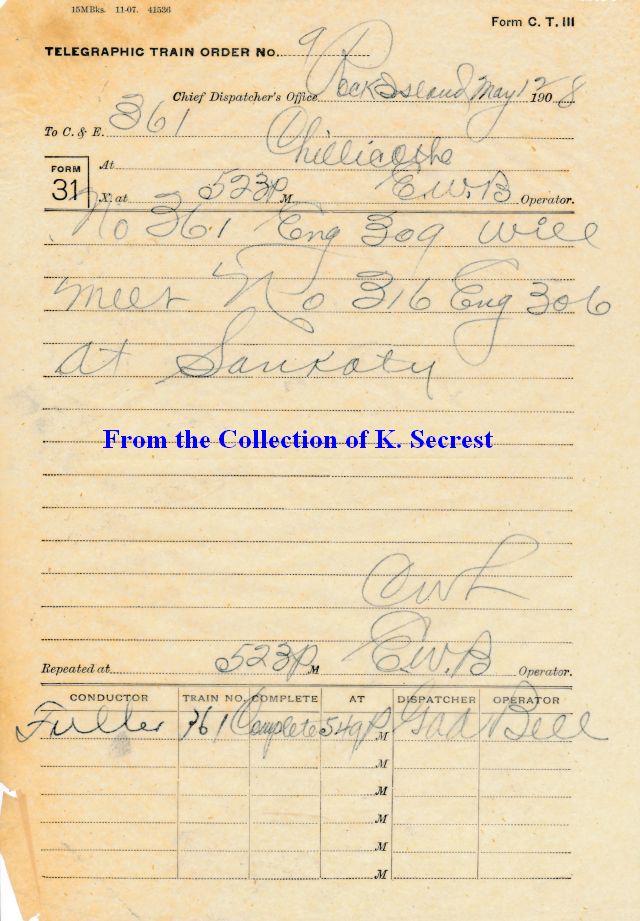 15MBks. 11-07. 41536
Form C. T. III
TELEGRAPHIC TRAIN ORDER No. 9
Chief Dispatcher's Office Rock Island May 12 1908
To C. & E. 361
At Chillicothe
FORM 31
X. at 523P M. E.W.B Operator.
No 361 Eng 309 will
meet No 316 Eng 306
at Sankoty
From the Collection of K. Secrest
CWL
Repeated at 523P M E.W.B Operator.
CONDUCTOR TRAIN NO. COMPLETE AT DISPATCHER OPERATOR
Fuller 361 Complete 549P M Bell
M
M
M
M
M